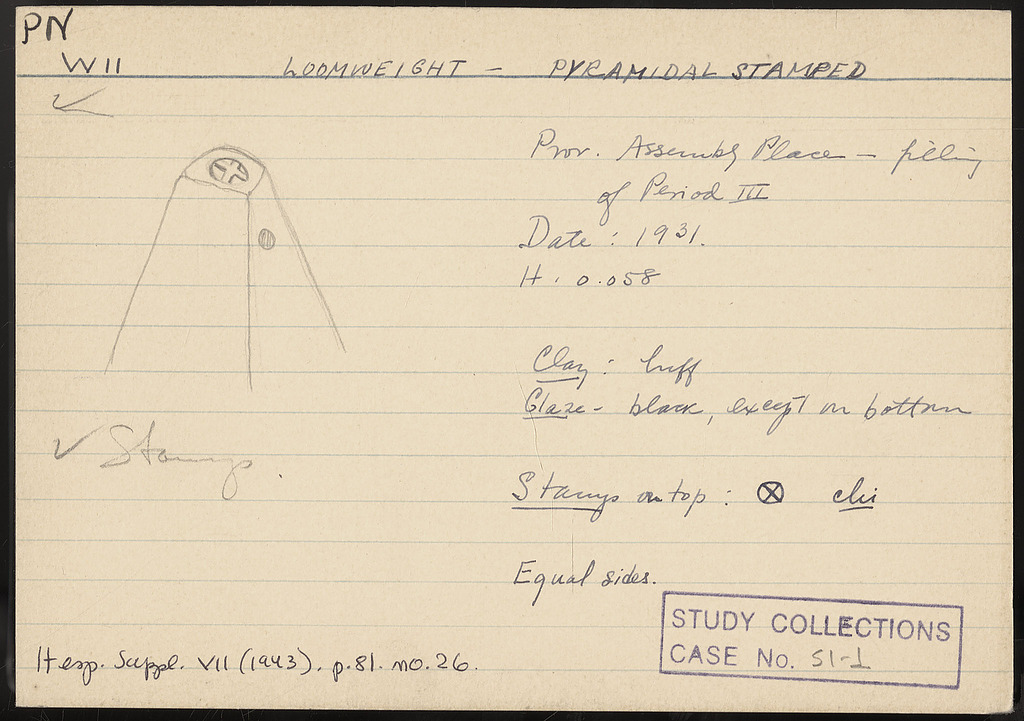 PN
W 11 LOOMWEIGHT - PYRAMIDAL STAMPED
Prov. Assembly Place - filling
of Period III
Date: 1931.
H. 0.058
Clay: buff
Glaze - black, except on bottom
Stamp.
Stamp on top: ⓧ chi
Equal sides.
Hesp. Suppl. VII (1943). p. 81. no. 26.
STUDY COLLECTIONS
CASE No. S1-1